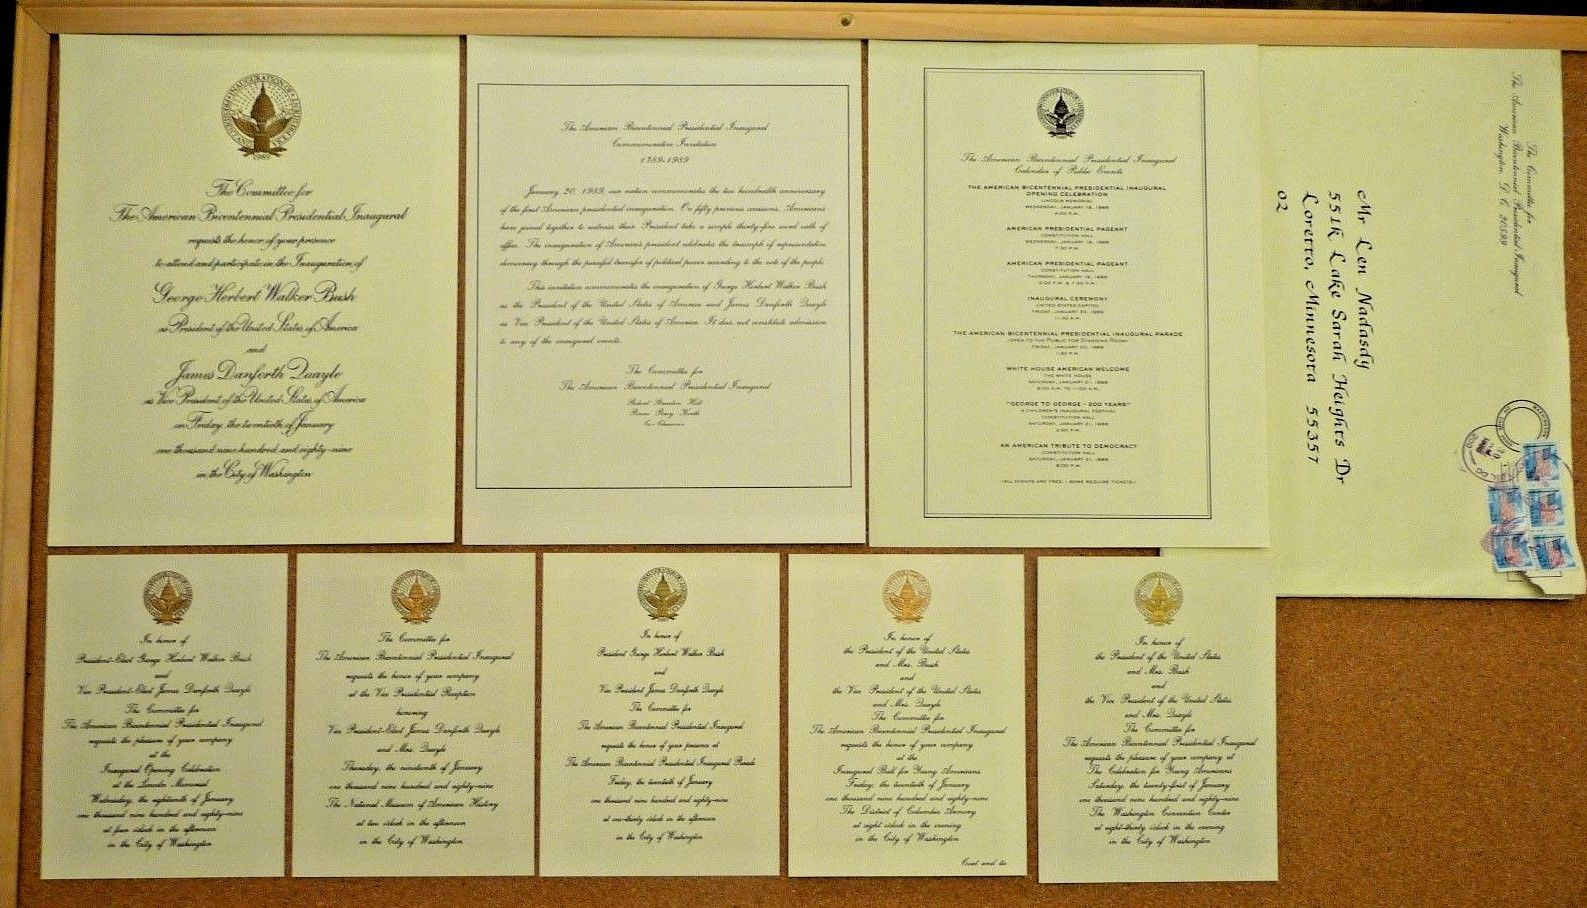 The Committee for
The American Bicentennial Presidential Inaugural
requests the honor of your presence
to attend and participate in the Inauguration of
George Herbert Walker Bush
as President of the United States of America
and
James Danforth Quayle
as Vice President of the United States of America
on Friday, the twentieth of January
one thousand nine hundred and eighty-nine
in the City of Washington
The American Bicentennial Presidential Inaugural
Commemorative Invitation
1789-1989
January 20, 1989, our nation commemorates the two hundredth anniversary
of the first American presidential inauguration. On fifty previous occasions, Americans
have joined together to witness their President take a simple thirty-five word oath of
office. The inauguration of America's president celebrates the triumph of representative
democracy through the peaceful transfer of political power according to the vote of the people.
This invitation commemorates the inauguration of George Herbert Walker Bush
as the President of the United States of America and James Danforth Quayle
as Vice President of the United States of America. It does not constitute admission
to any of the inaugural events.
The Committee for
The American Bicentennial Presidential Inaugural
Co-Chairmen
The American Bicentennial Presidential Inaugural
Calendar of Public Events
THE AMERICAN BICENTENNIAL PRESIDENTIAL INAUGURAL
OPENING CELEBRATION
LINCOLN MEMORIAL
WEDNESDAY, JANUARY 18, 1989
4:00 P.M.
AMERICAN PRESIDENTIAL PAGEANT
CONSTITUTION HALL
WEDNESDAY, JANUARY 18, 1989
7:30 P.M.
AMERICAN PRESIDENTIAL PAGEANT
CONSTITUTION HALL
THURSDAY, JANUARY 19, 1989
2:00 P.M. & 7:30 P.M.
INAUGURAL CEREMONY
UNITED STATES CAPITOL
FRIDAY, JANUARY 20, 1989
11:30 A.M.
THE AMERICAN BICENTENNIAL PRESIDENTIAL INAUGURAL PARADE
(OPEN TO THE PUBLIC FOR STANDING ROOM)
FRIDAY, JANUARY 20, 1989
1:30 P.M.
WHITE HOUSE AMERICAN WELCOME
THE WHITE HOUSE
SATURDAY, JANUARY 21, 1989
8:00 A.M. TO 11:00 A.M.
"GEORGE TO GEORGE - 200 YEARS"
A CHILDREN'S INAUGURAL FESTIVAL
CONSTITUTION HALL
SATURDAY, JANUARY 21, 1989
2:00 P.M.
AN AMERICAN TRIBUTE TO DEMOCRACY
CONSTITUTION HALL
SATURDAY, JANUARY 21, 1989
8:00 P.M.
(ALL EVENTS ARE FREE. SOME REQUIRE TICKETS.)
The Committee for
The American Bicentennial Presidential Inaugural
Washington, D.C. 20599
Mr Len Nadasdy
551k Lake Sarah Heights Dr
Loretto, Minnesota 55357
02
In honor of
President-Elect George Herbert Walker Bush
and
Vice President-Elect James Danforth Quayle
The Committee for
The American Bicentennial Presidential Inaugural
requests the pleasure of your company
at the
Inaugural Opening Celebration
at the Lincoln Memorial
Wednesday, the eighteenth of January
one thousand nine hundred and eighty-nine
at four o'clock in the afternoon
in the City of Washington
The Committee for
The American Bicentennial Presidential Inaugural
requests the honor of your company
at the Vice Presidential Reception
honoring
Vice President-Elect James Danforth Quayle
and Mrs. Quayle
Thursday, the nineteenth of January
one thousand nine hundred and eighty-nine
The National Museum of American History
at two o'clock in the afternoon
in the City of Washington
In honor of
President George Herbert Walker Bush
and
Vice President James Danforth Quayle
The Committee for
The American Bicentennial Presidential Inaugural
requests the honor of your presence at
The American Bicentennial Presidential Inaugural Parade
Friday, the twentieth of January
one thousand nine hundred and eighty-nine
at one-thirty o'clock in the afternoon
in the City of Washington
In honor of
the President of the United States
and Mrs. Bush
and
the Vice President of the United States
and Mrs. Quayle
The Committee for
The American Bicentennial Presidential Inaugural
requests the honor of your company
at the
Inaugural Ball for Young Americans
Friday, the twentieth of January
one thousand nine hundred and eighty-nine
The District of Columbia Armory
at eight o'clock in the evening
in the City of Washington
Coat and tie
In honor of
the President of the United States
and Mrs. Bush
and
the Vice President of the United States
and Mrs. Quayle
The Committee for
The American Bicentennial Presidential Inaugural
requests the pleasure of your company at
The Celebration for Young Americans
Saturday, the twenty-first of January
one thousand nine hundred and eighty-nine
The Washington Convention Center
at eight-thirty o'clock in the evening
in the City of Washington